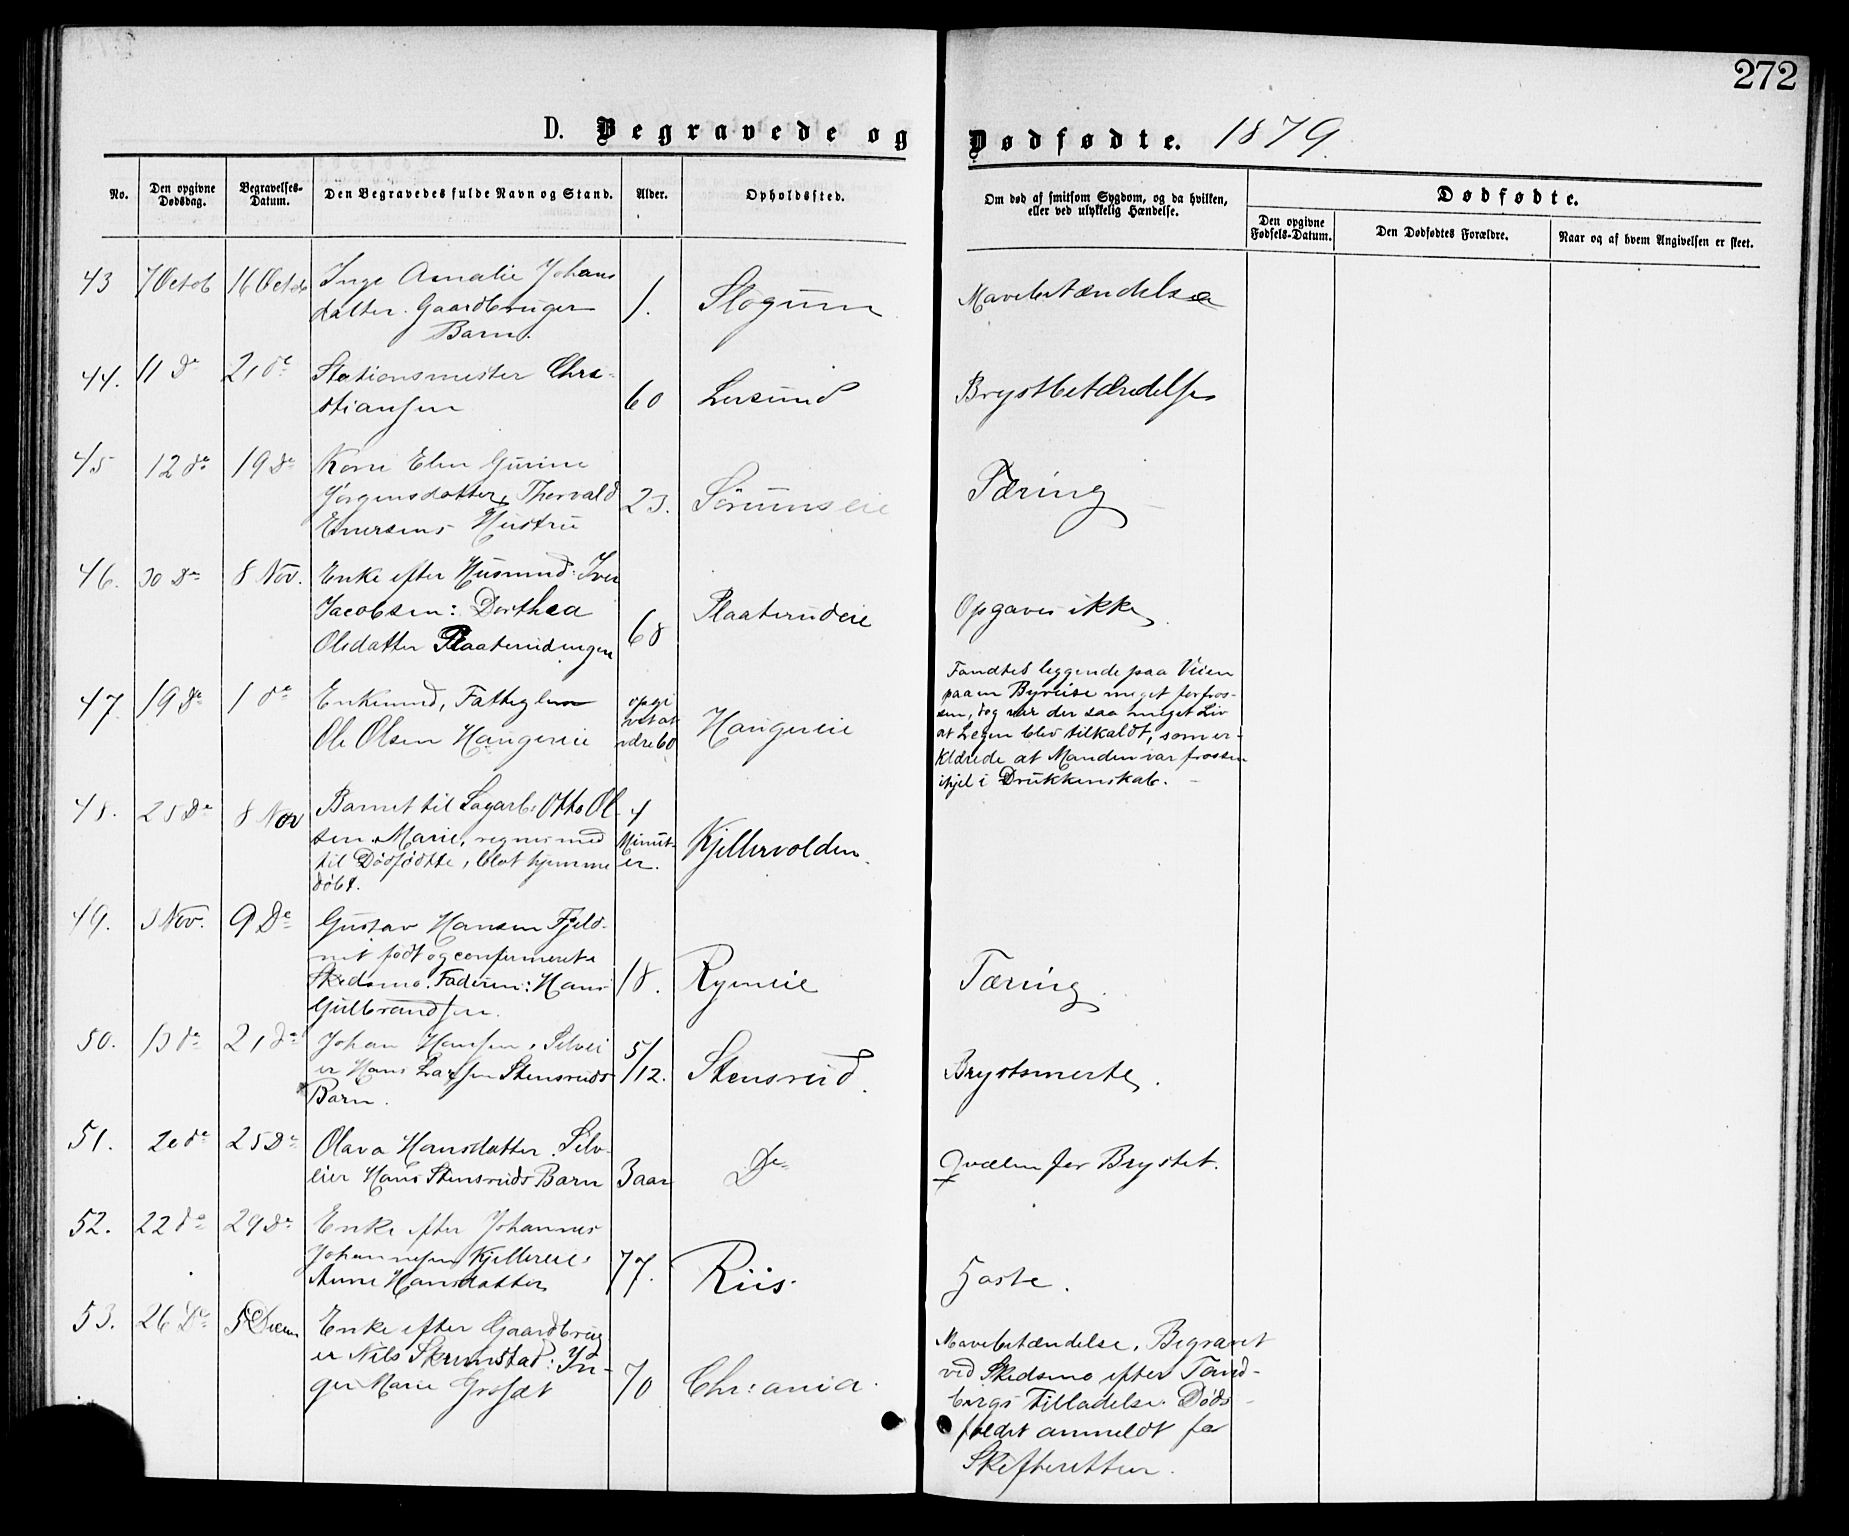 272
D. Begravede og Dødfødte. 1879.
No. Den opgivne Dødsdag. Begravelses-Datum. Den Begravedes fulde Navn og Stand. Alder. Opholdssted. Om død af smitsom Sygdom, og da hvilken, eller ved ulykkelig Hændelse. Dødfødte.
Den opgivne Fødsels-Datum. Den Dødfødtes Forældre. Naar og af hvem Angivelsen er skeet.
43 7 Octob 16 Octob Inge Amalie Johans
datter. Gaardbruger 1. Slogum Mavebetændelse
Barn.
44. 11 De 21 de Stationsmester Chri-
stiansen 60 Lersund Brystbetændelse
45 12 de 19 De Karn Elen Gurine
Jørgensdatter, Thorvald 23. Sörumseie Tæring
Enersens Hustru
46. 30 De 8 Nov. Enke efter Husmnd: Iver
Jacobsen: Dorthea Plaaterudeie Opgaves ikke.
Olsdatter Plaaterudengen 68
47. 19 De 1 de Enkemnd, Fattiglem opgi
Ole Olsen Haugereie vet at
være 60 Haugereie
Fandtes leggende paa Veien
paa en Byreise meget forfros-
sen, dog var der saa meget Liv
at Legen blev tilkaldt, som er-
klærede at Manden var frossen
ihjel i Drukkenskab.
48. 25 De 8 Nov Barnet til Sagarb: Otto Ol 4
sen. Marie, regnes med Minut-
til Dødfødte, blot hjemme er. Kjellervolden.
døbt.
49. 3 Nov. 9 De Gustav Hansen Fjeld-
født og confirmeret i
Skedsmo. Faderen: Hans 18. Ryeneie Tæring.
Gulbrandsen.
50. 13 de 21 de Johan Hansen, Selvei 5/12.
er Hans Larsen Stensruds Stensrud. Brystsmerte.
Barn.
51. 20 de 25 De Olava Hansdatter. Selv-
eier Hans Stensruds Barn 3 aar De Qvælen for Brystet.
52. 22 de 29 De Enke efter Johannes
Johannesen Kjellereie:
Anne Hansdatter 77. Riis. Hoste.
53. 26 De 5 Decem Enke efter Gaardbrug
er Nils Skrimstad: In-
ger Marie 70 Chr:ania.
Mavebetændelse. Begravet
ved Skedsmo efter Tand-
bergs Tilladelse. Døds-
faldet anmeldt for
Skifteretten.